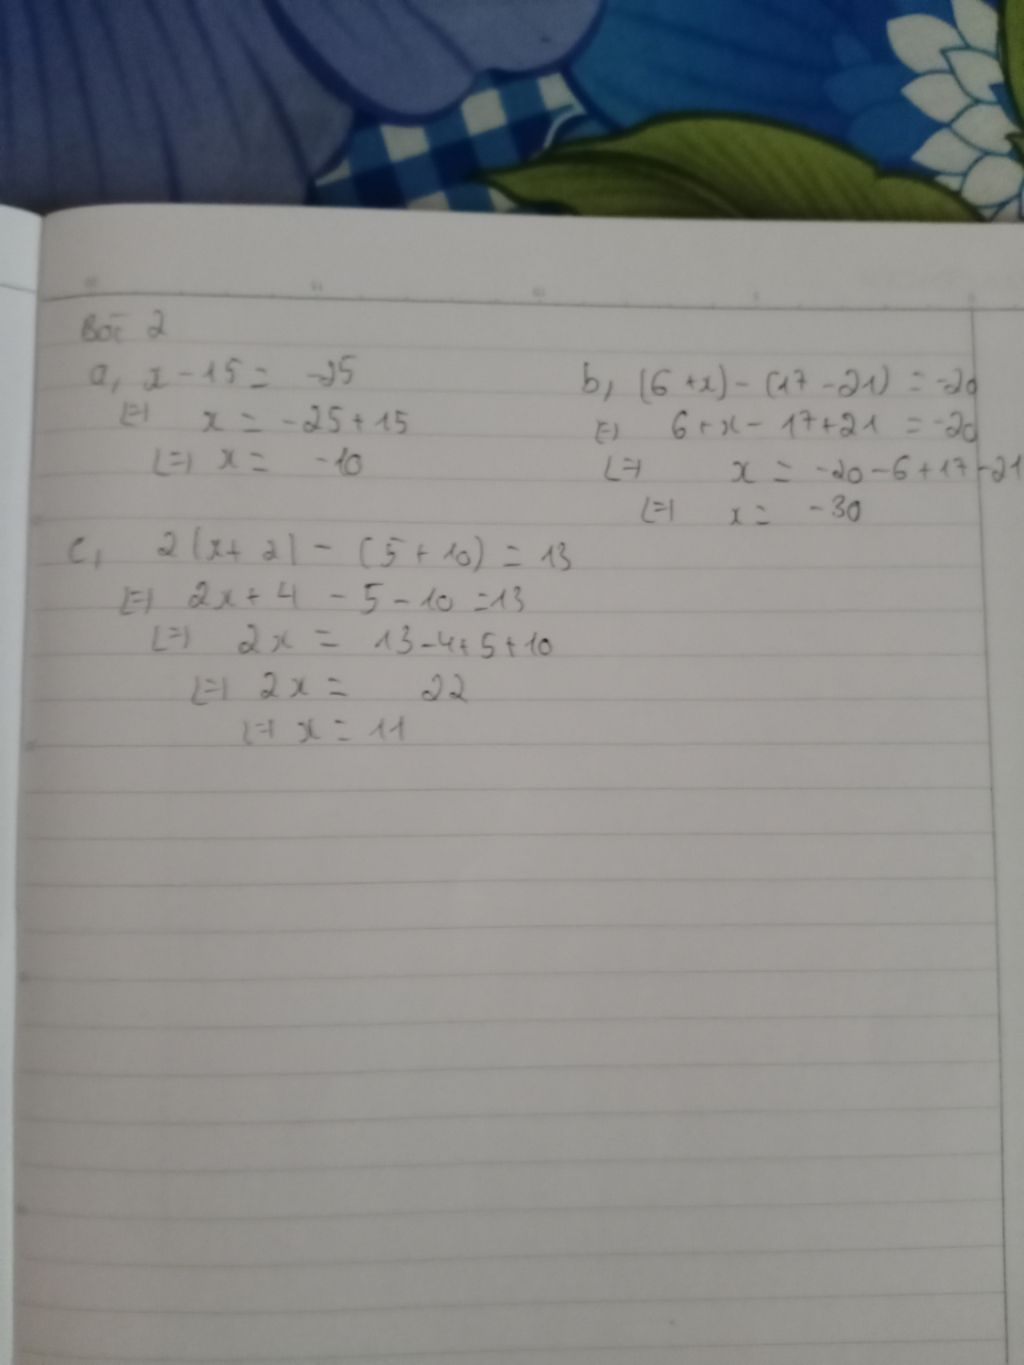 Bài 2
a, x - 15 = -25
⇔ x = -25 + 15
⇔ x = -10
b, (6 + x) - (17 - 21) = -20
⇔ 6 + x - 17 + 21 = -20
⇔ x = -20 - 6 + 17 - 21
⇔ x = -30
c, 2(x + 2) - (5 + 10) = 13
⇔ 2x + 4 - 5 - 10 = 13
⇔ 2x = 13 - 4 + 5 + 10
⇔ 2x = 22
⇔ x = 11